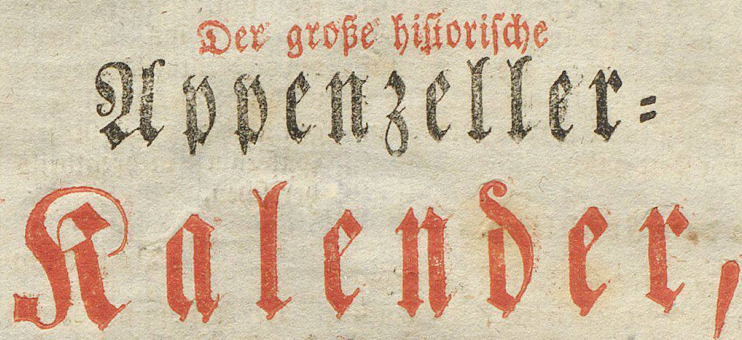 Der große hiſtoriſche
Appenzeller=
Kalender,